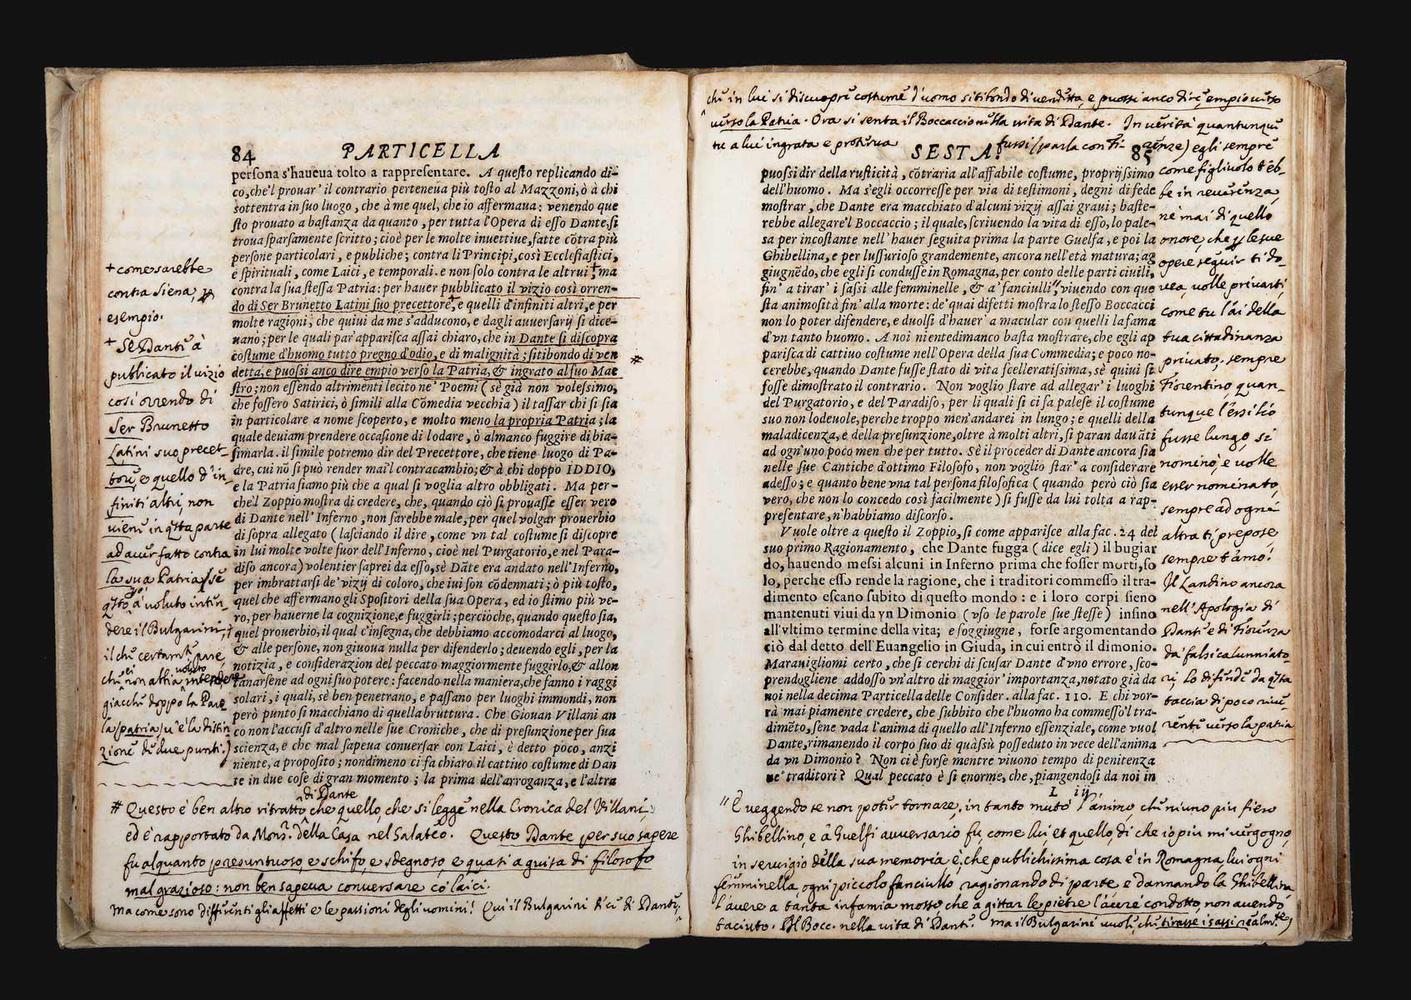 84 PARTICELLA
persona s'haueua tolto a rappresentare. A questo replicando di-
co, che'l prouar' il contrario perteneua più tosto al Mazzoni, ò à chi
sottentra in suo luogo, che à me quel, che io affermaua: venendo que
sto prouato a bastanza da quanto, per tutta l'Opera di esso Dante, si
troua sparsamente scritto; cioè per le molte inuettiue, fatte cōtra più
persone particolari, e publiche; contra li Principi, così Ecclesiastici,
e spirituali, come Laici, e temporali. e non solo contra le altrui, ma
contra la sua stessa Patria: per hauer pubblicato il vizio così orren-
do di Ser Brunetto Latini suo precettore, e quelli d'infiniti altri, e per
molte ragioni, che quiui da me s'adducono, e dagli auuersarij si dice-
uano; per le quali par'apparisca assai chiaro, che in Dante si discopra
costume d'huomo tutto pregno d'odio, e di malignità; sitibondo di ven
detta, e puossi anco dire empio verso la Patria, & ingrato al suo Mae
stro; non essendo altrimenti lecito ne' Poemi (se già non volessimo,
che fossero Satirici, ò simili alla Cōmedia vecchia) il tassar chi si sia
in particolare a nome scoperto, e molto meno la propria Patria; la
quale deuiam prendere occasione di lodare, ò almanco fuggire di bia-
simarla. il simile potremo dir del Precettore, che tiene luogo di Pa-
dre, cui nō si può render mai'l contracambio; & à chi doppo IDDIO,
e la Patria siamo più che a qual si voglia altro obbligati. Ma per-
che'l Zoppio mostra di credere, che, quando ciò si prouasse esser vero
di Dante nell'Inferno, non sarebbe male, per quel volgar prouerbio
di sopra allegato (lasciando il dire, come vn tal costume si discopre
in lui molte volte fuor dell'Inferno, cioè nel Purgatorio, e nel Para-
diso ancora) volentier saprei da esso, sè Dāte era andato nell'Inferno,
per imbrattarsi de' vizij di coloro, che iui son cōdennati; ò più tosto,
quel che affermano gli Spositori della sua Opera, ed io stimo più ve-
ro, per hauerne la cognizione, e fuggirli; perciòche, quando questo sia,
quel prouerbio, il qual c'insegna, che debbiamo accomodarci al luogo,
& alle persone, non giuoua nulla per difenderlo; deuendo egli, per la
notizia, e considerazion del peccato maggiormente fuggirlo, & allon
tanarsene ad ogni suo potere: facendo nella maniera, che fanno i raggi
solari, i quali, sè ben penetrano, e passano per luoghi immondi, non
però punto si macchiano di quella bruttura. Che Giouan Villani an
co non l'accusi d'altro nelle sue Croniche, che di presunzione per sua
scienza, e che mal sapeua conuersar con Laici, è detto poco, anzi
niente, a proposito; nondimeno ci fa chiaro il cattiuo costume di Dan
te in due cose di gran momento; la prima dell'arroganza, e l'altra
+ come sarebbe
contra Siena,
esempio.
+ Se Dante à
publicato il vizio
così orrendo di
Ser Brunetto
Latini suo precet-
tore, e quello d'in-
finiti altri, non
viene in q̄sta parte
ad auer fatto contra
la sua Patria, se
q̄sto à voluto inten-
dere il Bulgarini,
il che certam.te pare
che ei non abbia voluto intendere
giacchè doppo la Paro
la patria v'è la distin
zione di due punti.)
# Questo è ben altro ritratto di Dante che quello, che si legge nella Cronica del Villani,
ed è rapportato da Mons.r della Casa nel Galateo. Questo Dante per suo sapere
fu alquanto presuntuoso, e schifo e sdegnoso, e quasi a guisa di filosofo
mal grazioso: non ben sapeva conversare co' laici.
Ma come sono differenti gli affetti e le passioni degli uomini! Qui il Bulgarini dice di Dante,
che in lui si discuopre costume d'uomo sitibondo di vendetta, e puossi anco dire empio verso
verso la Patria. Ora si senta il Boccaccio nella vita di Dante. In verità quantunque
tu a lui ingrata e proterva fussi (parla con Fi-
renze) egli sempre
SESTA. 85
come figliuolo t'eb-
be in reverenza,
ne mai di quello
onore, che p le sue
opere seguir ti do-
vea, volle privarti,
come tu lui della
tua cittadinanza
privato, sempre
Fiorentino quan-
tunque l'essilio
fusse lungo, si
nominò, e volle
esser nominato,
sempre ad ogni
altra ti prepose
sempre t'amò.
Il Landino ancora
nell'Apologia di
Dante e di Fiorenza
da falsi calunniato-
ri, lo difende da q̄sta
taccia di poco rive-
rente verso la patria
puossi dir della rusticità, cōtraria all'affabile costume, proprijssimo
dell'huomo. Ma s'egli occorresse per via di testimoni, degni di fede
mostrar, che Dante era macchiato d'alcuni vizij assai graui; baste-
rebbe allegare'l Boccaccio; il quale, scriuendo la vita di esso, lo pale-
sa per incostante nell'hauer seguita prima la parte Guelfa, e poi la
Ghibellina, e per lussurioso grandemente, ancora nell'età matura; ag
giugnēdo, che egli si condusse in Romagna, per conto delle parti ciuili,
fin' a tirar' i sassi alle femminelle, & a' fanciulli, viuendo con que
sta animosità fin' alla morte: de' quai difetti mostra lo stesso Boccacci
non lo poter difendere, e duolsi d'hauer' a macular con quelli la fama
d'vn tanto huomo. A noi nientedimanco basta mostrare, che egli ap
parisca di cattiuo costume nell'Opera della sua Commedia; e poco no-
cerebbe, quando Dante fusse stato di vita sceleratissima, sè quiui si
fosse dimostrato il contrario. Non voglio stare ad allegar' i luoghi
del Purgatorio, e del Paradiso, per li quali si ci fa palese il costume
suo non lodeuole, perche troppo men'andarei in lungo; e quelli della
maladicenza, e della presunzione, oltre à molti altri, si paran dauāti
ad ogn'vno poco men che per tutto. Sè il proceder di Dante ancora sia
nelle sue Cantiche d'ottimo Filosofo, non voglio star' a considerare
adesso; e quanto bene vna tal persona filosofica (quando però ciò sia
vero, che non lo concedo così facilmente) si fusse da lui tolta a rap-
presentare, n'habbiamo discorso.
Vuole oltre a questo il Zoppio, si come apparisce alla fac. 24 del
suo primo Ragionamento, che Dante fugga (dice egli) il bugiar
do, hauendo messi alcuni in Inferno prima che fosser morti, so
lo, perche esso rende la ragione, che i traditori commesso il tra-
dimento escano subito di questo mondo: e i loro corpi sieno
mantenuti viui da vn Dimonio (vso le parole sue stesse) insino
all'vltimo termine della vita; e soggiugne, forse argomentando
ciò dal detto dell'Euangelio in Giuda, in cui entrò il dimonio.
Marauigliomi certo, che si cerchi di scusar Dante d'vno errore, sco-
prendogliene addosso vn'altro di maggior'importanza, notato già da
noi nella decima Particella delle Consider. alla fac. 110. E chi vor-
rà mai piamente credere, che subbito che l'huomo ha commesso'l tra-
dimēto, sene vada l'anima di quello all'Inferno essenziale, come vuol
Dante, rimanendo il corpo suo di quàsù posseduto in vece dell'anima
da vn Dimonio? Non ci è forse mentre viuono tempo di penitenza
ne' traditori? Qual peccato è sì enorme, che, piangendosi da noi in
I iij
" E veggendo se non poter tornare, in tanto mutò l'animo che niuno più fiero
Ghibellino, e à Guelfi avversario fu come lui et quello, di che io più mi vergogno,
in servigio della sua memoria è, che publichissima cosa è in Romagna, lui ogni
femminella, ogni piccolo fanciullo ragionando di parte, e dannando la Ghibellina,
l'avere a tanta infamia mosso che a gittar le pietre l'avrè condotto, non avendo
taciuto. Il Bocc. nella vita di Dante. ma il Bulgarini vuole, che tirasse i sassi realm.te)